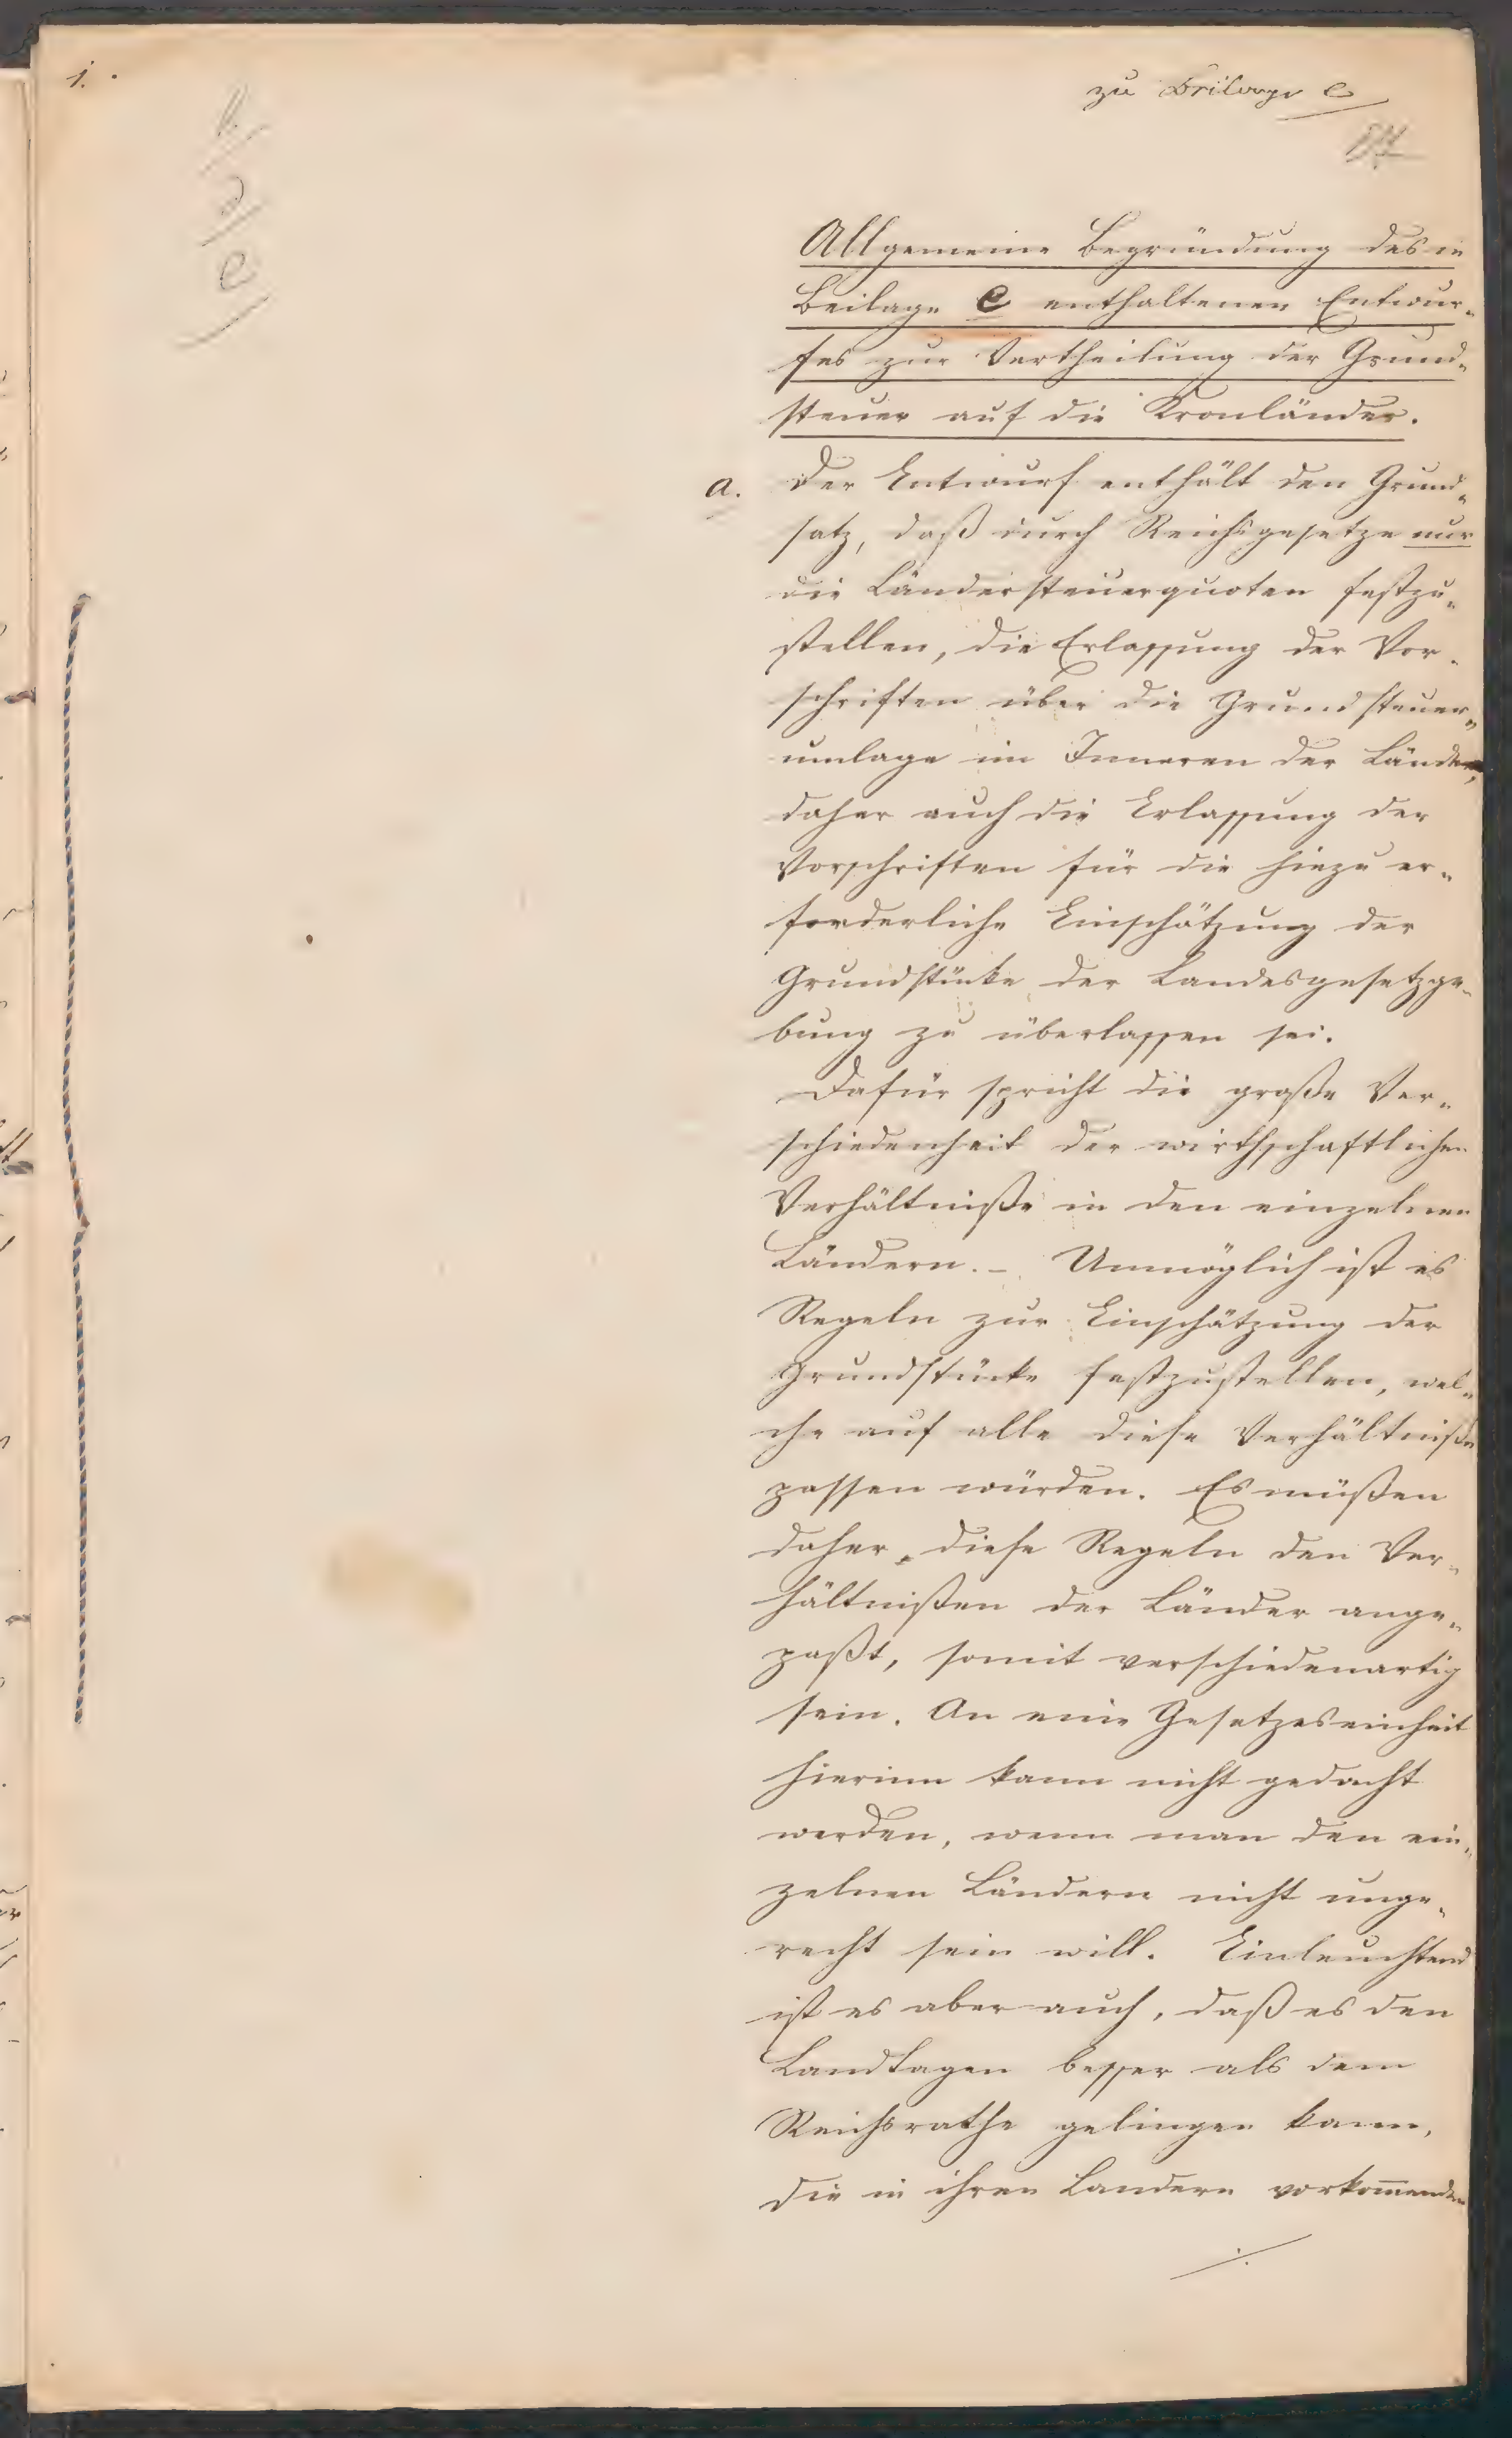 1.
zu Beilage e
d
e
Allgemeine Begründung des in
Beilage e enthaltenen Entwur„
fes zur Vertheilung der Grund„
steuer auf die Kronländer.
a. Der Entwurf enthält den Grund„
satz, daß durch Reichsgesetze nur
die Ländersteuerquoten festzu„
stellen, die Erlassung der Vor„
schriften über die Grundsteuer„
umlage im Inneren der Länder,
daher auch die Erlassung der
Vorschriften für die hiezu er„
forderliche Einschätzung der
Grundstücke der Landesgesetzge„
bung zu überlassen sei.
Dafür spricht die große Ver„
schiedenheit der wirthschaftlichen
Verhältniße in den einzelnen
Ländern. – Unmöglich ist es
Regeln zur Einschätzung der
Grundstücke festzustellen, wel„
che auf alle diese Verhältniße
passen würden. Es müßen
daher diese Regeln den Ver„
hältnißen der Länder ange„
paßt, somit verschiedenartig
sein. An eine Gesetzeseinheit
hierinn kann nicht gedacht
werden, wenn man den ein„
zelnen Ländern nicht unge„
recht sein will. Einleuchtend
ist es aber auch, daß es den
Landtagen besser als dem
Reichsrathe gelingen kann,
die in ihren Landern vorkom̅enden
./.